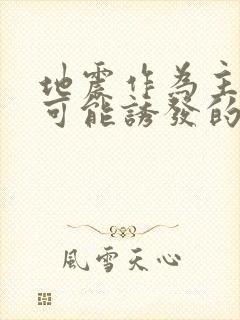 地震作为主
可能誘發的
風雪天心